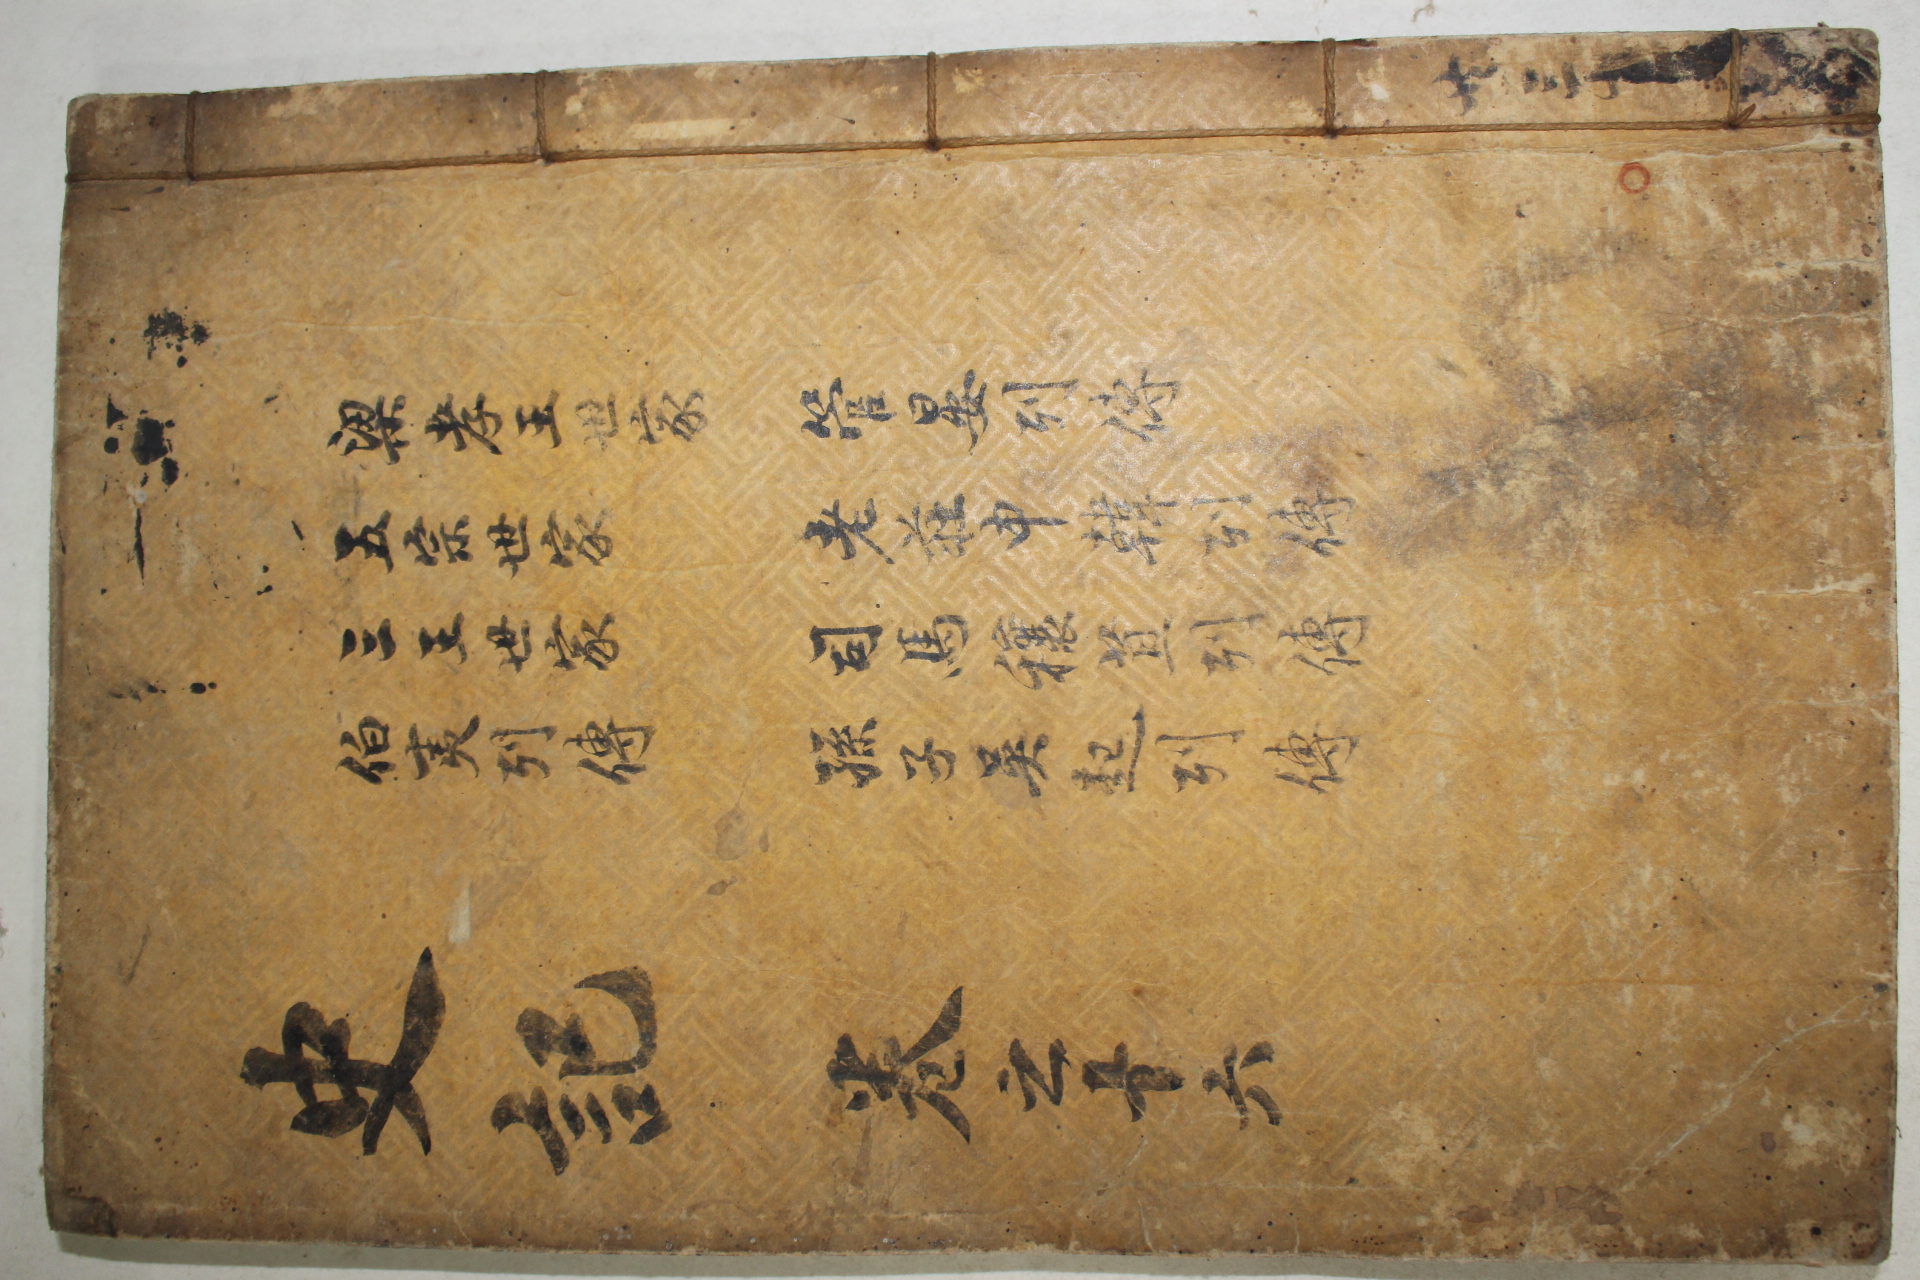 梁孝王世家
五宗世家
三王世家
伯夷列傳
管晏列傳
老莊申韓列傳
司馬穰苴列傳
孫子吳起列傳
史記 卷之十六
共三十